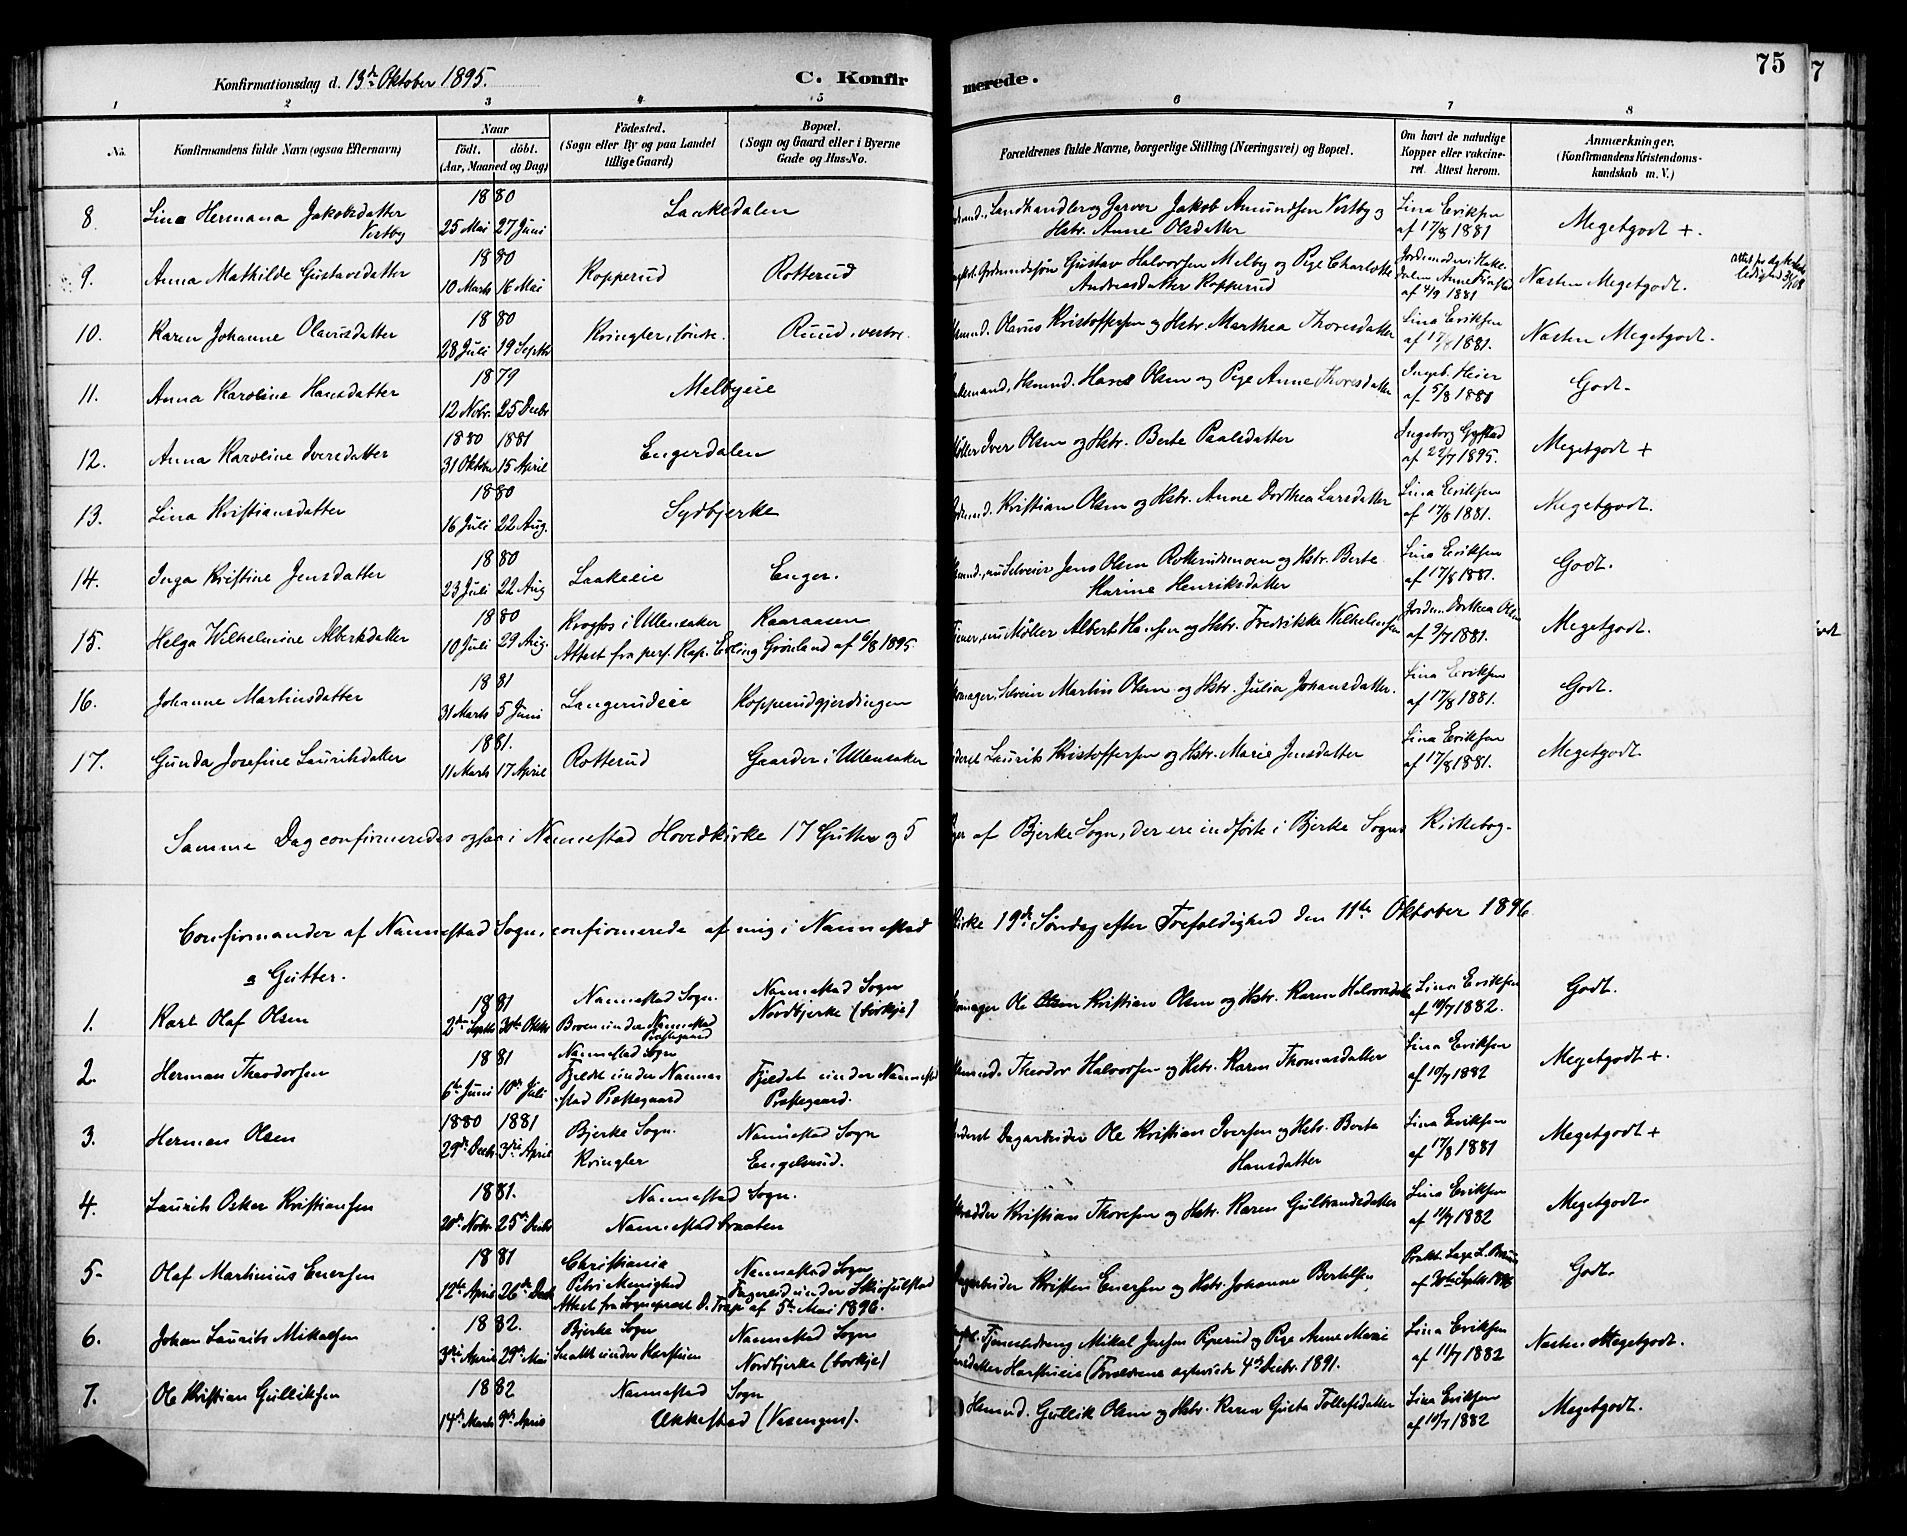 Konfirmationsdag d. 13de Oktober 1895.
C. Konfirmerede.
75
7
1 2 3 4 5 6 7 8
No.
Konfirmandens fulde Navn (ogsaa Efternavn)
Naar
födt. döbt.
(Aar, Maaned og Dag)
Födested.
(Sogn eller By og paa Landet
tillige Gaard)
Bopæl.
(Sogn og Gaard eller i Byerne
Gade og Hus-No.
Forældrenes fulde Navne, borgerlige Stilling (Næringsvei) og Bopæl.
Om havt de naturlige
Kopper eller vakcine-
ret. Attest herom.
Anmærkninger.
(Konfirmandens Kristendoms-
kundskab m. V.)
8. Lina Hermana Jakobsdatter
Vestby
1880
25 Mai 27 Juni
Laakedalen
Landhandler og Garver Jakob Amundsen Vestby og
Hstr. Anne Olsdatter
Lina Eriksen
af 17/8 1881
Megetgodt +.
9. Anna Mathilde Gustavsdatter
1880
10 Marts 16 Mai
Kopperud Rotterud
Gustav Halvorsen Melby og Pige Charlotte
Andreasdatter Kopperud
af 4/9 1881
Næsten Megetgodt.
10. Karen Johanne Olavusdatter
1880
28 Juli 19 Septbr
Kringler, söndre. Ruud, vestre.
Olavus Kristoffersen og Hstr. Marthea Thoresdatter
Lina Eriksen
af 17/8 1881.
Næsten Megetgodt.
11. Anna Karoline Hansdatter
1879
12 Nobr. 25 Decbr
Melbyeie
Hans Olsen og Pige Anne Thoresdatter
Ingeb. Heier
af 5/8 1880
Godt.
12. Anna Karoline Iversdatter
1880 1881
31 Oktbr 15 April
Engerdalen
Møller Iver Olsen og Hstr. Berte Paalsdatter
Ingeborg Gystad
af 22/7 1895.
Megetgodt +
13. Lina Kristiansdatter
1880
16 Juli 22 Aug.
Sydbjerke
Kristian Olsen og Hstr. Anne Dorthea Larsdatter
Lina Eriksen
af 17/8 1881.
Megetgodt.
14. Inga Kristine Jensdatter
1880
23 Juli 22 Aug
Laakeeie Enger.
nu Selveier Jens Olsen Rotterudmoen og Hstr. Berte
Karine Henriksdatter
Lina Eriksen
af 17/8 1881.
Godt.
15. Helga Wilhelmine Albertsdatter
1880
10 Juli 29 Aug.
Krogfos i Ullensaker Kaaraasen
Attest fra pers. Kap. Erling Grönland af 6/8 1895.
nu Møller Albert Hansen og Hstr. Fredrikke Wilhelmsen
Jordm. Dorthea Olsen
af 9/7 1881.
Megetgodt.
16. Johanne Martinsdatter
1881
31 Marts 5 Juni
Langerudeie Kopperudgjerdingen
Selveier Martin Olsen og Hstr. Julia Johansdatter.
Lina Eriksen
af 17/8 1881.
Godt.
17. Gunda Josefine Lauritsdatter
1881.
11 Marts 17 April
Rotterud Gaarder i Ullensaker
Laurits Kristoffersen og Hstr. Marie Jensdatter
Lina Eriksen
af 17/8 1881.
Megetgodt.
Samme Dag confirmeredes ogsaa i Nannestad Hovedkirke 17 Gutter og 5
Piger af Bjerke Sogn, der ere indførte i Bjerke Sogns Kirkebog.
Confirmander af Nannestad Sogn, confirmerede af mig i Nannestad
Kirke 19de Søndag efter Trefoldighed den 11te Oktober 1896
a Gutter.
1. Karl Olaf Olsen
1881
2den Septbr 30te Oktbr
Nannestad Sogn.
Broen under Nannestad
Præstegaard
Nannestad Sogn
Nordbjerke (Lorkje)
Ole Kristian Olsen og Hstr. Karen Halvorsdatter
Lina Eriksen
af 10/7 1882.
Godt.
2. Herman Theodorsen
1881
6te Juni 10de Juli
Nannestad Sogn
Fjeldet under Nannestad Præstegaard
Fjeldet under Nannestad
Præstegaard.
Theodor Halvorsen og Hstr. Karen Thomasdatter
Lina Eriksen
af 10/7 1882
Megetgodt +.
3. Herman Olsen
1880 1881
29de Decbr. 3die April
Bjerke Sogn.
Kringler
Nannestad Sogn
Engelsrud.
Dagarbeider Ole Kristian Iversen og Hstr. Berte
Hansdatter
Lina Eriksen
af 17/8 1881
Megetgodt +
4. Laurits Oskar Kristiansen
1881.
20de Nobr. 25de Decbr
Nannestad Sogn.
Nannestad braaten
Kristian Thoresen og Hstr. Karen Gulbrandsdatter
Lina Eriksen
af 11/7 1882
Megetgodt.
5. Olaf Martinius Enersen
1881
12te April 26de Decbr
Christiania
Petri Menighed
Attest fra Sogneprest D. Trap af 5te Mai 1896.
Nannestad Sogn
Kristen Enersen og Hstr. Johanne Bertelsen
Godt.
6. Johan Laurits Mikalsen
1882.
3die April 29de Mai
Bjerke Sogn
Nannestad Sogn
Nordbjerke (Lorkje)
Tjenestedreng Mikal Jensen Piperud og Pige Anne Marie
(Forældrene ægteviede 4de Decbr. 1891.
Lina Eriksen
af 11/7 1882
Næsten Megetgodt.
7. Ole Kristian Gulliksen
1882
14de Marts 9de April
Nannestad Sogn
Ukkestad (Vesengen).
Husmd. Gullik Olsen og Hstr. Karen Gusta Tollefsdatter
Lina Eriksen
af 10/7 1882
Megetgodt.